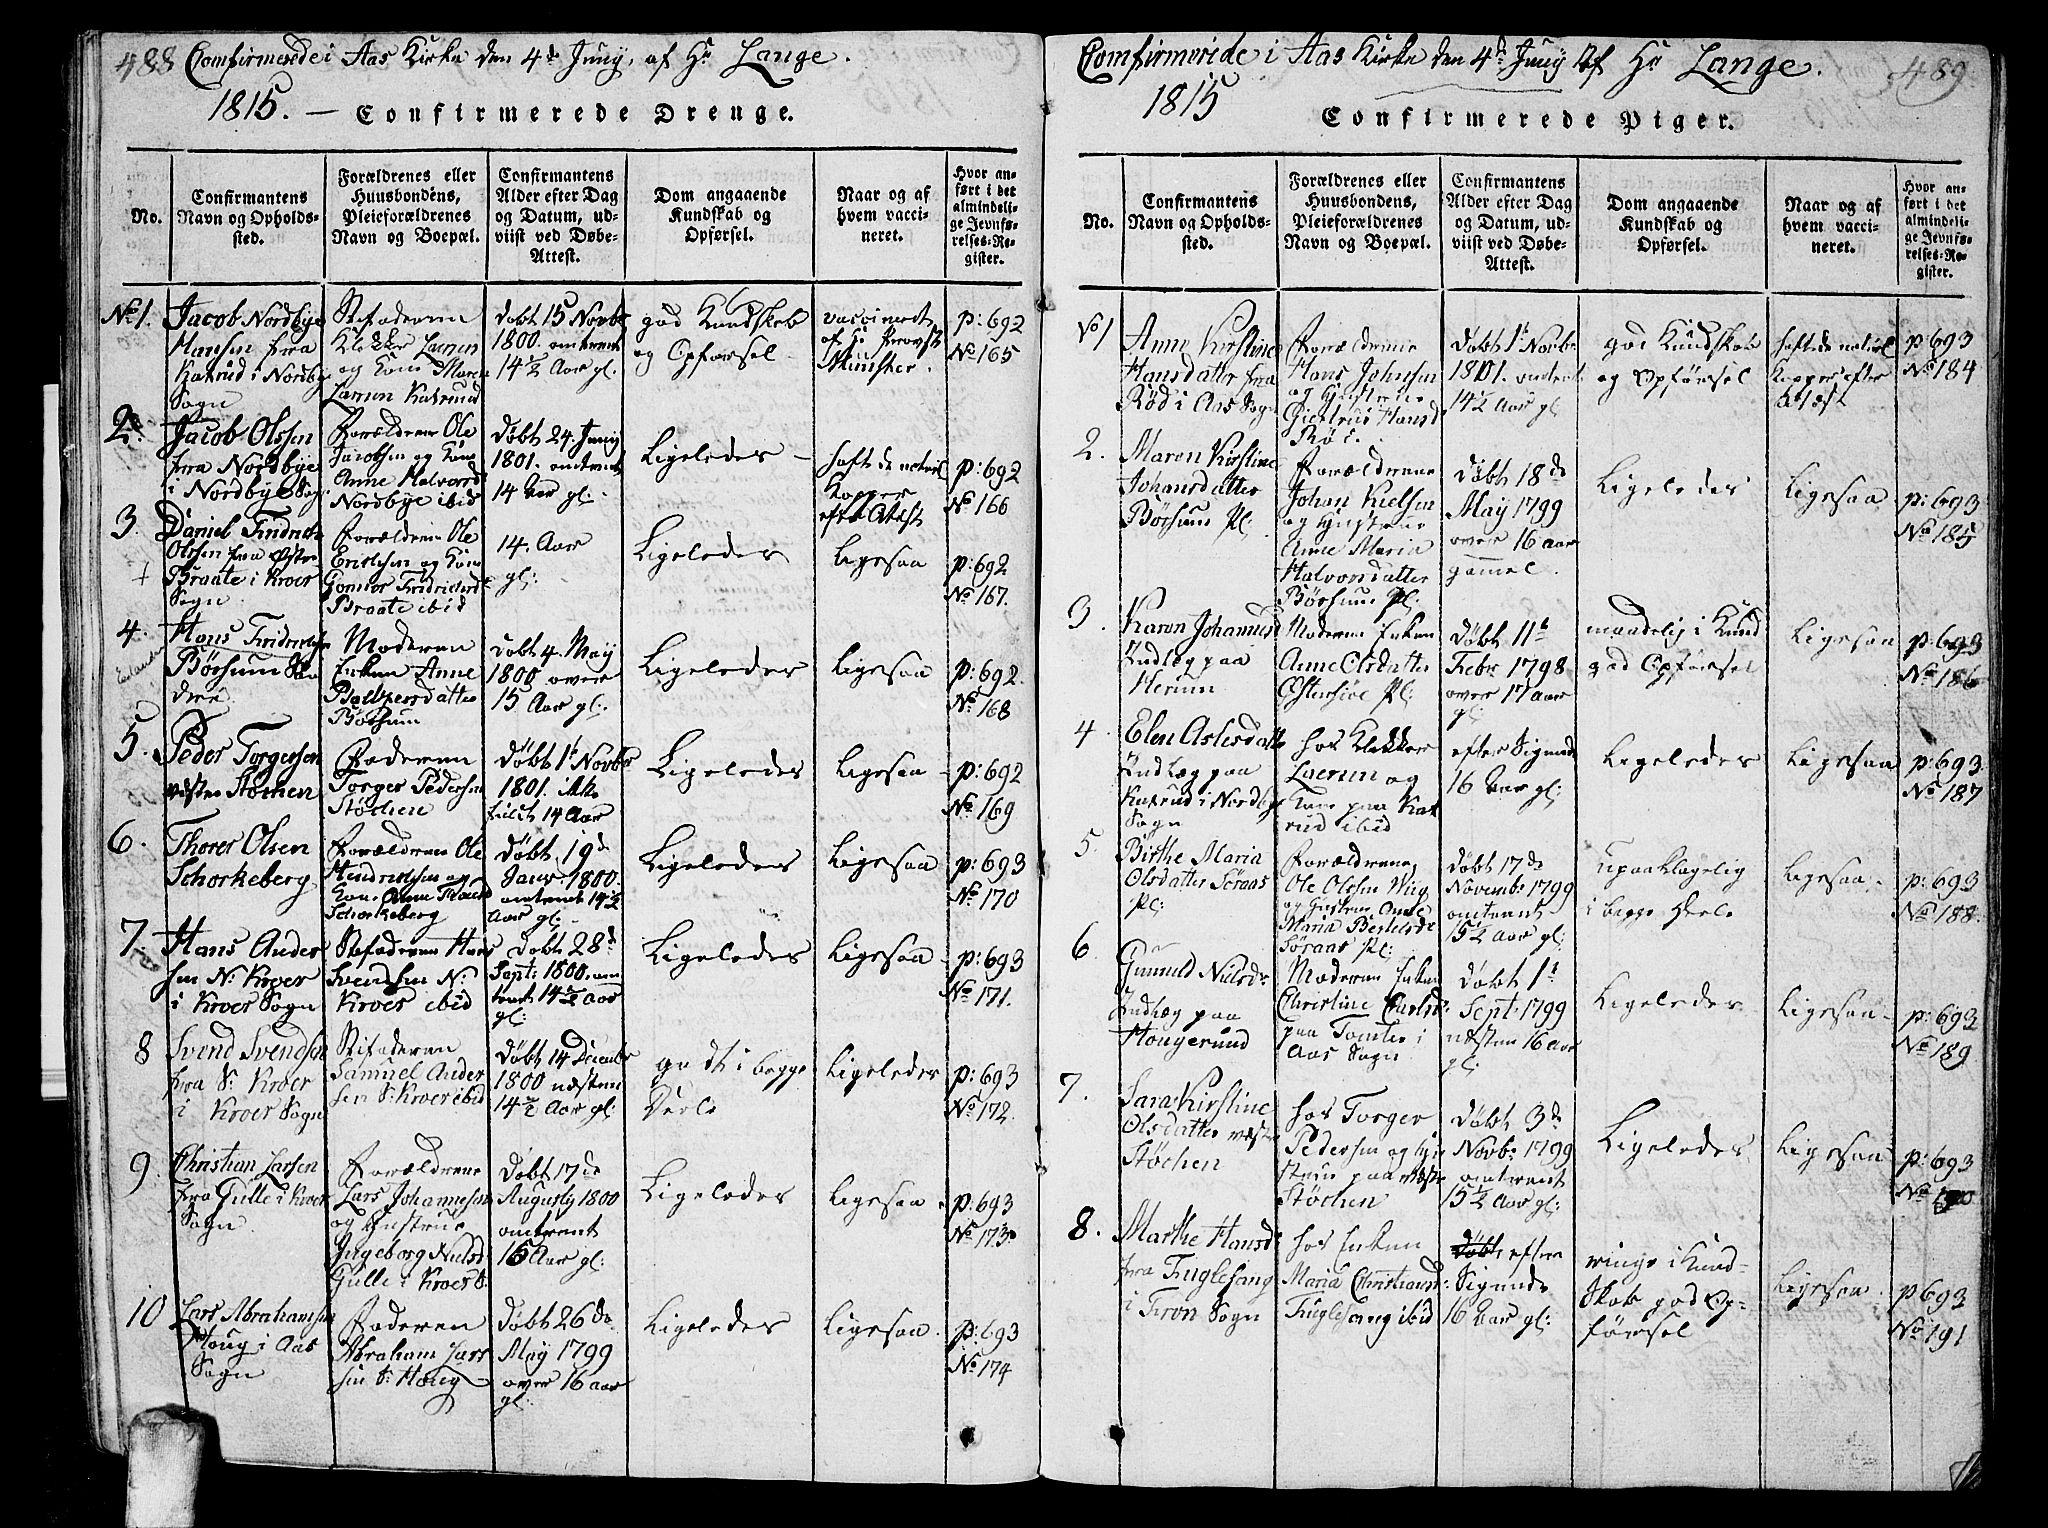 488 Confirmerede i Aas Kirke den 4de Juny, af Hr Lange.
1815. — Confirmerede Drenge.
No.
Confirmantens
Navn og Opholds-
sted.
Forældrenes eller
Huusbondens,
Pleieforældrenes
Navn og Boepæl.
Confirmantens
Alder efter Dag
og Datum, ud-
viist ved Døbe-
Attest.
Dom angaaende
Kundskab og
Opførsel.
Naar og af
hvem vacci-
neret.
Hvor an-
ført i det
almindeli-
ge Jevnfø-
relses-Re-
gister.
No 1.
Jacob Nordbye
Hansen fra
Katrud i Nordby
Sogn
Stifaderen
Klokker Larsen
og Kone Maren
Larsen Katerud
Døbt 15 Novbr
1800. omtrent
14½ Aar gl.
god Kundskab
og Opførsel
vaccineret
af Hr Provst
Münster.
p: 692
No 165
2.
Jacob Olssen
fra Nordbye
i Nordbye Sogn
Forældrene Ole
Jacobsen og Kone
Anne Halvorsd
Nordbye ibid
Døbt 24. Juny
1801. omtrent
14 Aar gl:
Ligeledes —
haft de naturl
Kopper
efter Attest
p: 692
No 166
3.
Daniel Fridrich
Olssen fra Østre
Braate i Kroer
Sogn
Forældrene Ole
Erichsen og Kone
Fridrichsd
Braate ibid
14. Aar
gl:
Ligeledes
Ligesaa
p: 692
No 167.
4.
Hans Fridrichsen
Børsum
Moderen
Enken Anne
Børsum
Døbt 4. May
1800 over
15 Aar gl:
Ligeledes
Ligesaa
p: 692.
No 168
5.
Peder Torgersen
vestre Støchen
Faderen
Torger Pedersen
Støchen
Døbt 1t Novbr
1801. ikke
fuldt 14 Aar
Ligeledes
Ligesaa
p: 692
No 169
6.
Thorer Olsen
Schorkeberg
Forældrene Ole
Hendrichsen og
Kone Anne
Schorkeberg
Døbt 19d
Janr: 1800.
omtrent 14½
Aar gl:
Ligeledes
Ligesaa
p: 693
No 170
7.
Hans Ander
sen N: Kroer
i Kroer Sogn
Stifaderen Hans
Svendsen N:
Kroer ibid
Døbt 28d
Sept: 1800. om
trent 14½ Aar
gl:
Ligeledes
Ligesaa
p: 693
No 171.
8
Svend Svendsen
fra S: Kroer
i Kroer Sogn
Stifaderen
Samuel Ander
sen S: Kroer ibid
Døbt 14 December
1800 næsten
14½ Aar gl:
godt i begge
Deele
Ligeledes
p: 693
No 172.
9.
Christian Larsen
fra Gulle i Kroer
Sogn
Forældrene
Lars Johannesen
og Hustrue
Ingeborg Nielsd
Gulle i Kroer S.
Døbt 17de
Augusty 1800
omtrent
15 Aar gl:
Ligeledes
Ligesaa
p: 693
No 173.
10
Lars Abrahamsen
Houg i Aas
Sogn
Faderen
Abraham Lars
sen S: Houg
Døbt 26de
May 1799
over 16 Aar
gl:
Ligeledes
Ligesaa.
p: 693
No 174
Confirmerede i Aas Kirke den 4de Juny Af Hr Lange. 489.
1815
Confirmerede Piger.
No.
Confirmantens
Navn og Opholds-
sted.
Forældrenes eller
Huusbondens,
Pleieforældrenes
Navn og Boepæl.
Confirmantens
Alder efter Dag
og Datum, ud-
viist ved Døbe-
Attest.
Dom angaaende
Kundskab og
Opførsel.
Naar og af
hvem vacci-
neret.
Hvor an-
ført i det
almindeli-
ge Jevnfø-
relses-Re-
gister.
No 1
Anne Kirstine
Hansdatter fra
Röd i Aas Sogn
Forældrene
Hans Johnsen
og Hustrue
Giertrud Hansd
Röd.
Döbt 1t Novbr
1801. omtrent
14½ Aar gl
god Kundskab
og Opførsel
hafte de naturl
Kopper efter
Attest
p: 693
No 184
2.
Maren Kirstine
Johansdatter
Börsum Pl:
Forældrene
Johan Nielsen
og Hustrue
Anne Maria
Halvorsdatter
Börsum Pl:
Döbt 18de
May 1799
over 16 Aar
gamel.
Ligeledes
Ligesaa
p: 693
No 185
3.
Karen Johannesd
Indlæg paa
Herum
Moderen Enken
Anne Olsdatter
Østensiøe Pl:
Döbt 11t
Febr: 1798
over 17 Aar
gl:
maadelig i Kund
god Opførsel
Ligesaa
p: 693
No 186
4.
Elen Aslesdatter
Indlæg paa
Katrud i Nordby
Sogn
hos Klokker
Larsen og
Kone paa Kat
rud ibid
efter Sigende
16 Aar gl:
Ligeledes
Ligesaa
p: 693.
No 187
5.
Birthe Maria
Olsdatter Søraas
Pl:
Forældrene
Ole Olsen Wiig
og Hustrue Anne
Maria Bertelsd
Søraas Pl:
Döbt 17de
Novembr 1799
omtrent
15½ Aar gl:
upaaklagelig
i begge Deele
Ligesaa.
p: 693
No 188.
6.
Gunnild Nielsdr
Indlæg paa
Hougerund
Moderen Enken
Christine Carlsd:
paa Tomter i
Aas Sogn
Döbt 1t
Sept: 1799
næsten 16 Aar
gl:
Ligeledes
Ligesaa
p: 693
No 189.
7.
Sara Kirstine
Olsdatter vestre
Støchen
hos Torger
Pedersen og Hu
strue paa vestre
Støchen
Döbt 3d
Novbr: 1799
omtrent
15½ Aar gl:
Ligeledes
Ligesaa
p: 693
No 190
8.
Marthe Hansd:
fra Fuglesang
i Fron Sogn
hos Enken
Maria Christiansd:
Fuglesang ibid
Döbt efter
Sigende
16 Aar gl:
ringe i Kund-
skab god Op-
førsel
Ligesaa.
p 693
No 191